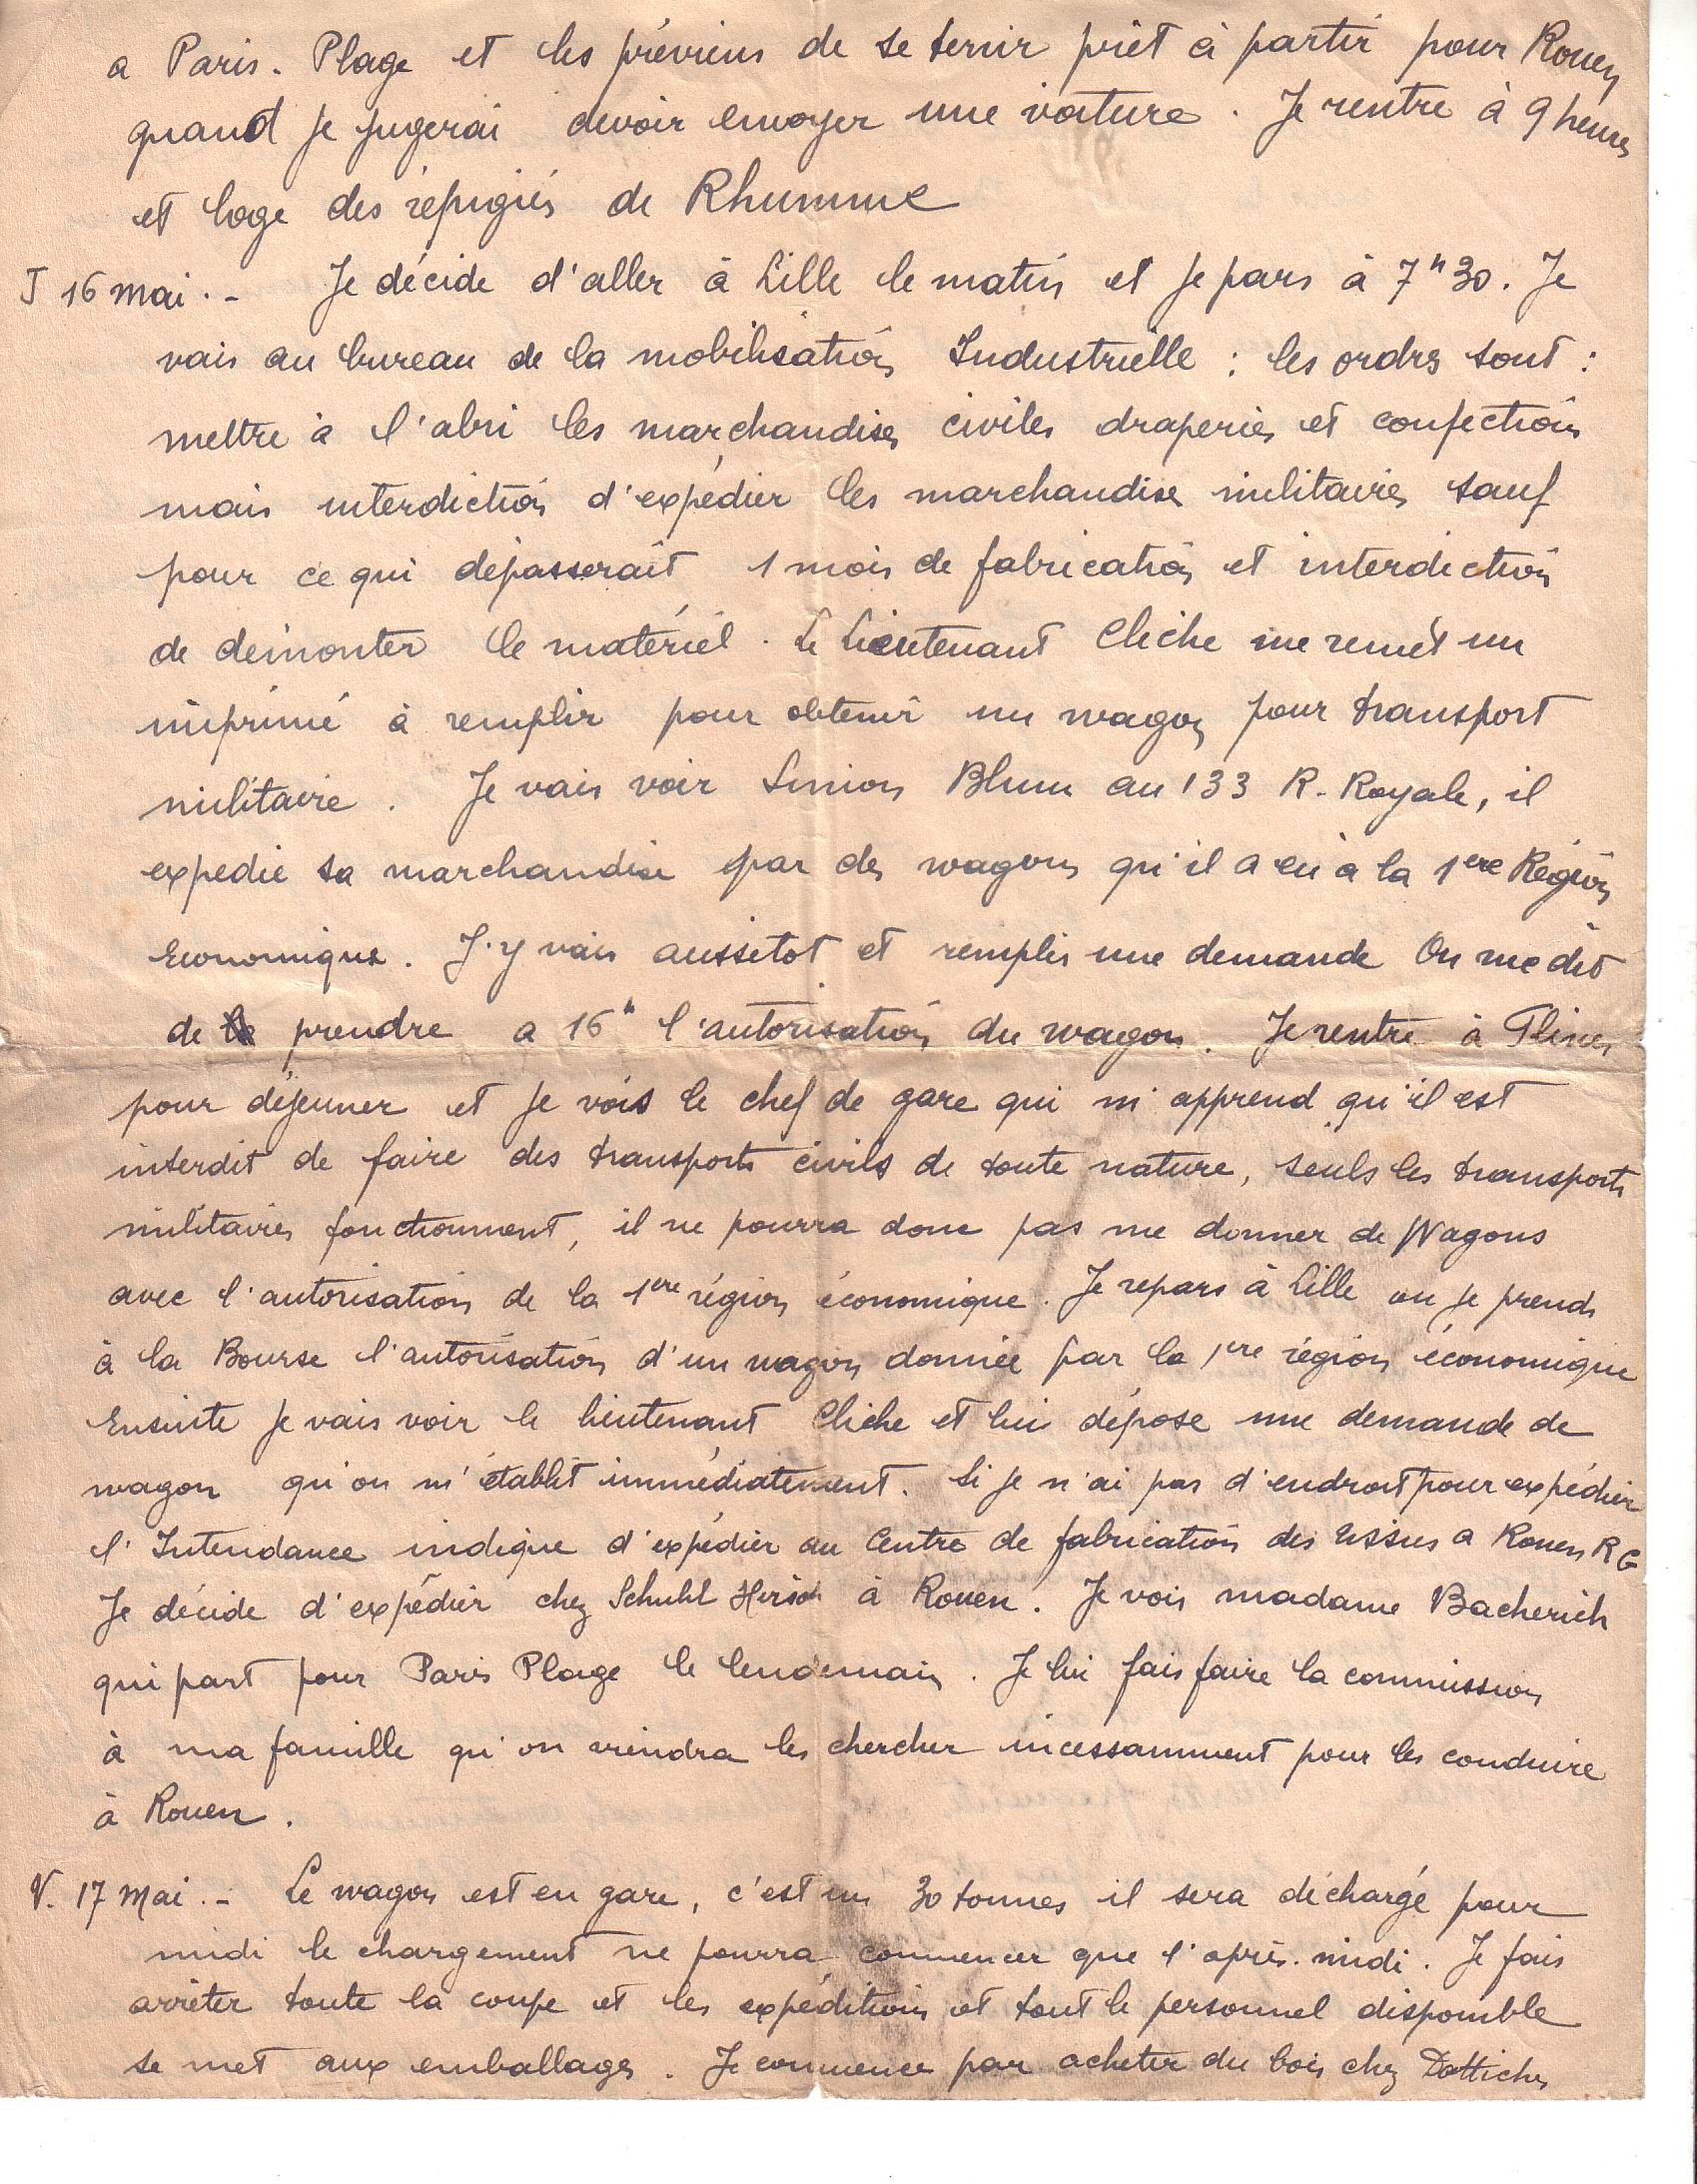 a Paris-Plage et les préviens de se tenir prêt à partir pour Rouen
quand je jugerai devoir envoyer une voiture. Je rentre à 9 heures
et loge des réfugiés de Rhumme
J 16 mai.- Je décide d'aller à Lille le matin et je pars à 7h30. Je
vais au bureau de la mobilisation Industrielle : les ordres sont :
mettre à l'abri les marchandises civiles draperies et confections
mais interdiction d'expédier les marchandises militaires sauf
pour ce qui dépasserait 1 mois de fabrication et interdiction
de démonter le matériel. Le Lieutenant Cliche me remet un
imprimé à remplir pour obtenir un wagon pour transport
militaire. Je vais voir Simon Blum au 133 R. Royale, il
expedie sa marchandise par des wagons qu'il a eu à la 1ere Région
Economique. J'y vais aussitot et remplis une demande On me dit
de prendre a 16h l'autorisation du wagon. Je rentre à Flines
pour déjeuner et je vois le chef de gare qui m'apprend qu'il est
interdit de faire des transports civils de toute nature, seuls les transports
militaires fonctionnent, il ne pourra donc pas me donner de Wagons
avec l'autorisation de la 1ere région économique. Je repars à Lille ou je prends
à la Bourse l'autorisation d'un wagon donnée par la 1ere région économique
Ensuite je vais voir le lieutenant Cliche et lui dépose une demande de
wagon qu'on m'établit immédiatement. Si je n'ai pas d'endroit pour expédier
l'Intendance indique d'expédier au Centre de fabrication des tissus a Rouen RG
Je décide d'expédier chez Schuhl Hirsch à Rouen. Je vois madame Bacherich
qui part pour Paris Plage le lendemain. Je lui fais faire la commission
à ma famille qu'on viendra les chercher incessamment pour les conduire
à Rouen.
V. 17 Mai.- Le wagon est en gare, c'est un 30 tonnes il sera déchargé pour
midi le chargement ne pourra commencer que l'après-midi. Je fais
arrêter toute la coupe et les expéditions et tout le personnel disponible
se met aux emballages. Je commence par acheter du bois chez